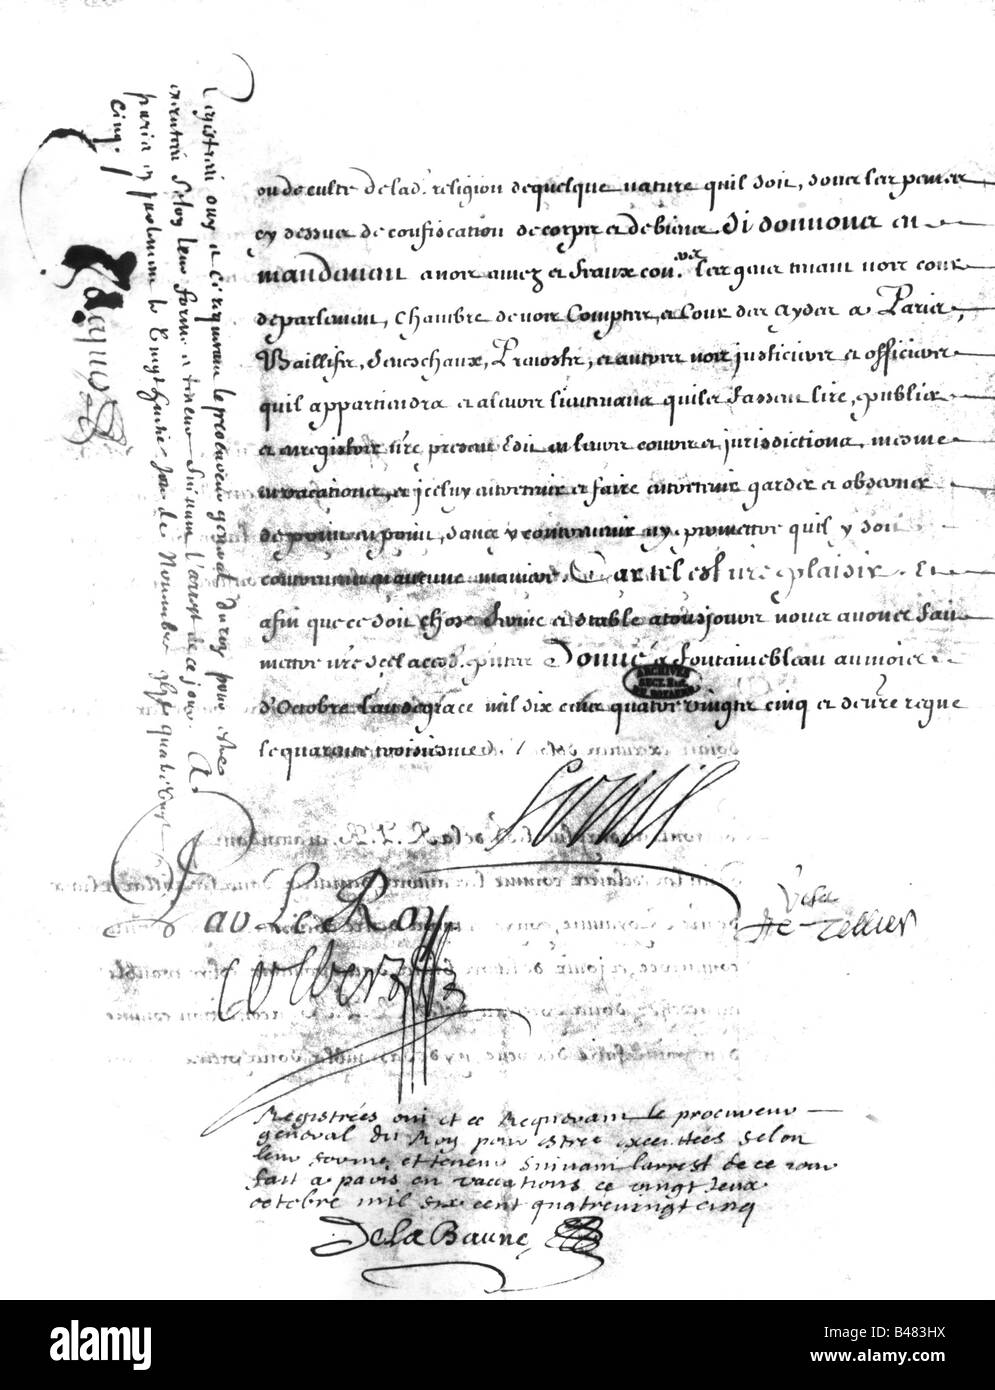 ou de culte de lad. religion de quelque nature quil soit, sous les peines
cy dessus de confiscation de corps et de biens, Si donnons en
mandement a nos amez et feaux con.ers les gens tenans nos cours
de parlement, Chambre de nos Comptes, et Cour des Aydes a Paris,
Baillifs, Seneschaux, Prevosts, et autres nos justiciers et officiers
quil appartiendra et a leurs lieutenans quils fassent lire, publier
et enregistrer n're present Edit en leurs cours et jurisdictions, mesme
en vacations, et jceluy entretenir et faire entretenir garder et observer
de point en point, sans y contrevenir ny permettre quil y soit
contrevenu en aucune maniere. Car tel est n're plaisir. Et
afin que ce soit chose ferme et stable a tousjours nous avons fait
mettre n're scel a cesd. p'ntes Donné a Fontainebleau au mois
d'Octobre l'an de grace mil six cens quatre vingts cinq et de n're regne
le quarante troisiesme
Louis
Visa
Le Tellier
Par Le Roy
Colbert
Registrées oui et ce Requerant le procureur
general du Roy pour estre executtées selon
leur forme et teneur Suivant l'arrest de ce jour
fait a paris en vacations ce vingt deux
octobre mil six cent quatrevingt cinq
De la Baune
Registré ouy et ce requerant le procureur general du roy pour estre
executé selon leur forme et teneur suivant l'arrest de ce jour. A
paris en parlement le
cinq.
Jacques
ARCHIVES
SECT. HIST.
DU ROYAUME
alamy
Image ID: B483HX
www.alamy.com